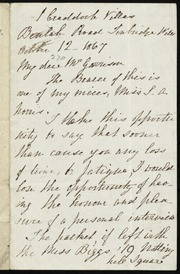 1 Craddock Villas
Beulah Road Tunbridge Wells
October 12 - 1867
My dear Mr Garrison
The Bearer of this is
one of my nieces, Miss L. A
I take this opportu-
nity to say that sooner
than cause you any loss
of time, or fatigue I would
lose the opportunity of hav-
ing the honour and plea-
sure of a personal interview
The packet, if left with
the Miss Biggs, 19 Notting
Hill Square